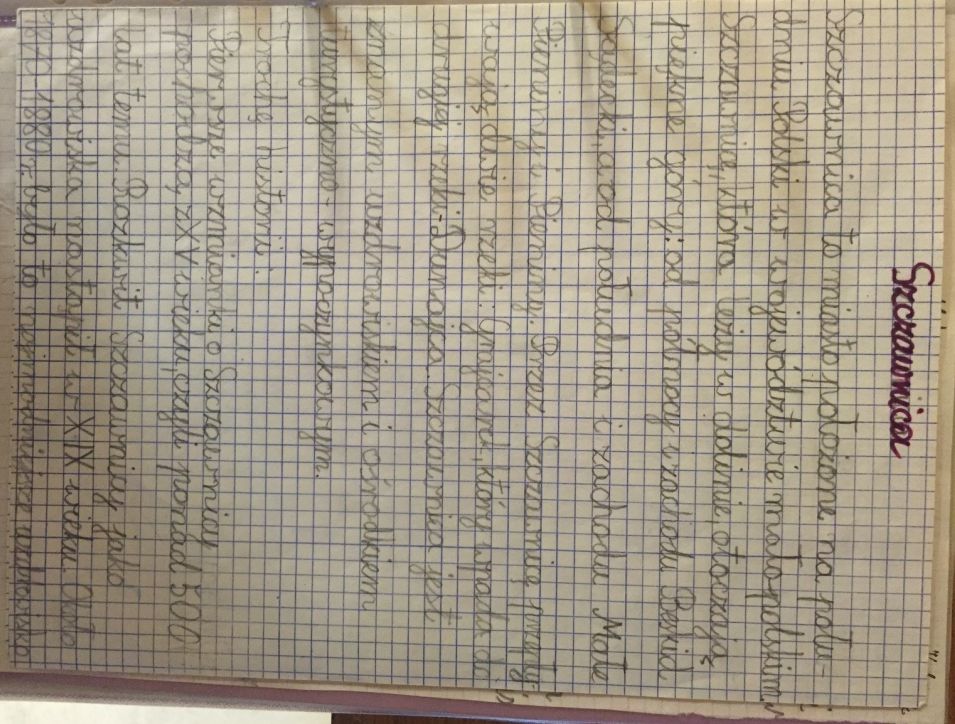 Szczawnica
Szczawnica to miasto położone na połu-
dniu Polski w województwie małopolskim
Szczawnicę, która leży w dolinie, otoczają
piękne góry: od północy i zachodu Beskid
Sądecki, a od południa i zachodu Małe
Pieniny i Pieniny. Przez Szczawnicę przepły-
wają dwie rzeki: Grajcarek który wpada do
drugiej rzeki-Dunajca. Szczawnica jest
znanym uzdrowiskiem i ośrodkiem
turystyczno-wypoczynkowym.
Trochę historii.
Pierwsze wzmianki o Szczawnicy
pochodzą z XV wieku, czyli ponad 500
lat temu. Rozkwit Szczawnicy jako
uzdrowiska nastąpił w XIX wieku. Około
1870-1880r. było to